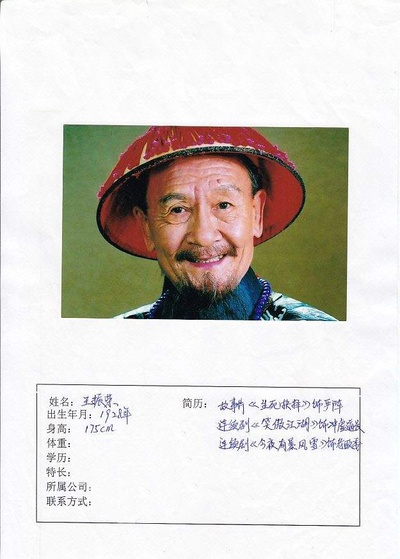 姓名：王振荣
出生年月：1928年
身高：175cm
体重：
学历：
特长：
所属公司：
联系方式：
简历：故事片《生死抉择》饰严阵
连续剧《笑傲江湖》饰冲虚道长
连续剧《今夜有暴风雪》饰老政委